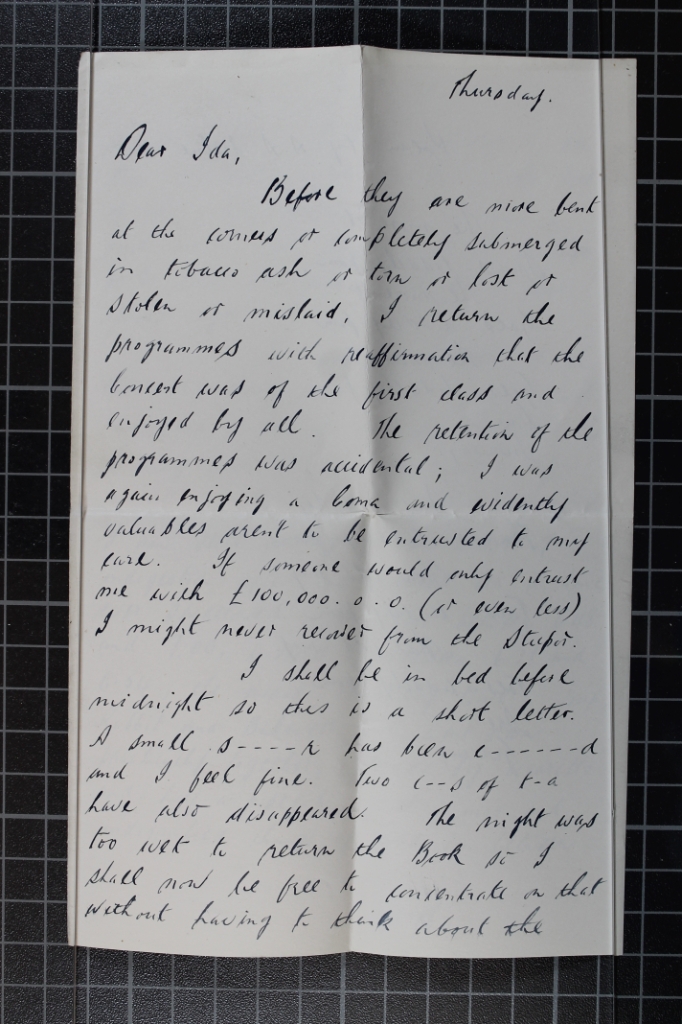 Thursday.
Dear Ida,
Before they are more bent
at the corners or completely submerged
in tobacco ash or torn or lost or
stolen or mislaid, I return the
programmes with reaffirmation that the
Concert was of the first class and
enjoyed by all. The retention of the
programmes was accidental; I was
again enjoying a Coma and evidently
valuables arent to be entrusted to my
care. If someone would only entrust
me with £100,000.0.0. (or even less)
I might never recover from the Stupor.
I shall be in bed before
midnight so this is a short letter.
A small s----r has been c------d
and I feel fine. Two c--s of t-a
have also disappeared. The night was
too wet to return the Book so I
shall now be free to concentrate on that
without having to think about the